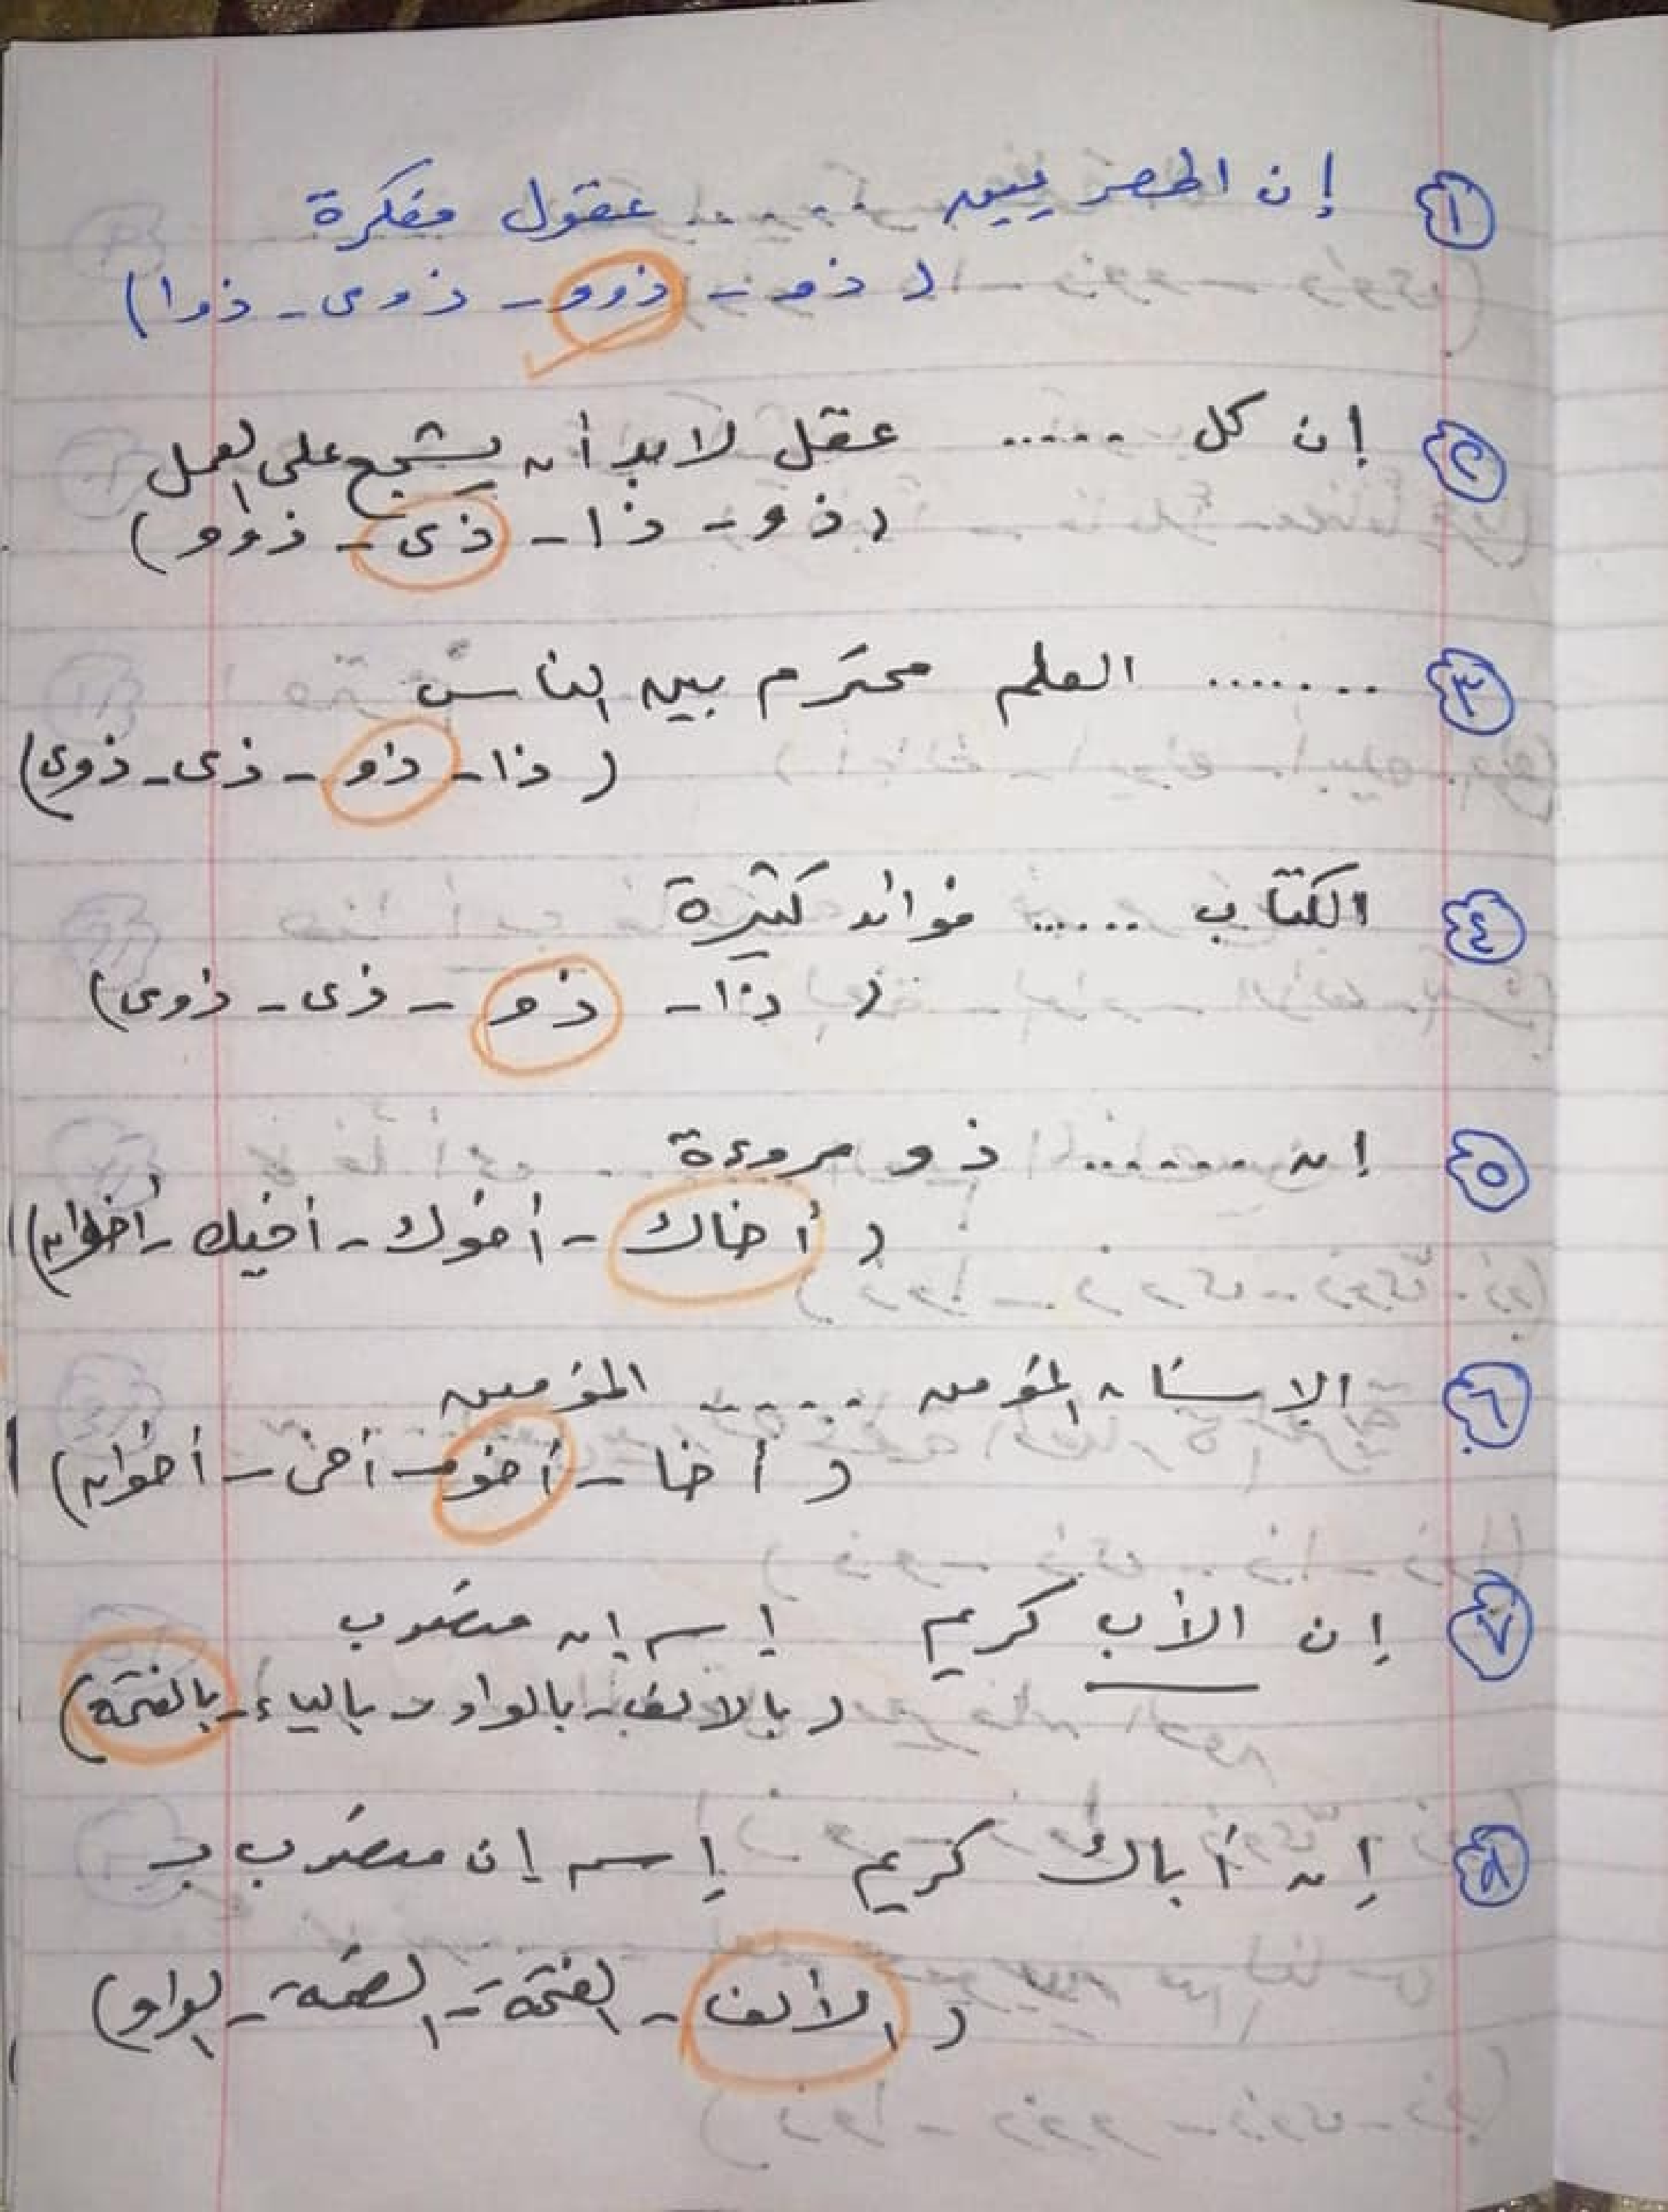 ١ إن المصريين ..... عقول مفكرة
( ذو - ذوو - ذوى - ذوا )
٢ إن كل ..... عقل لابد أن يشجع على العمل
( ذو - ذا - ذى - ذوو )
٣ ....... العلم محترم بين الناس
( ذا - ذو - ذى - ذوى )
٤ الكتاب ...... فوائد كثيرة
( ذا - ذو - ذى - ذوى )
٥ إن ....... ذو مروءة
( أخاك - أخوك - أخيك - أخوان )
٦ الإنسان المؤمن ..... المؤمن
( أخا - أخو - أخى - أخوان )
٧ إن الأب كريم إسم إن منصوب
( بالالف - بالواو - بالياء - بالفتحة )
٨ إن أباك كريم إسم إن منصوب بـ
( الألف - الفتحة - الضمة - الواو )